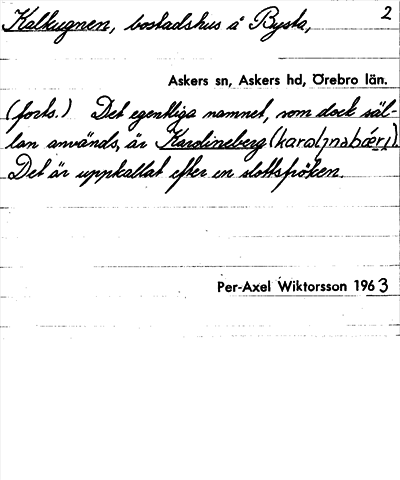 Kalkugnen, bostadshus å Bysta, 2
Askers sn, Askers hd, Örebro län.
(forts.) Det egentliga namnet, som dock säl-
lan används, är Karolineberg
Det är uppkallat efter en slottsfröken.
Per-Axel Wiktorsson 1963